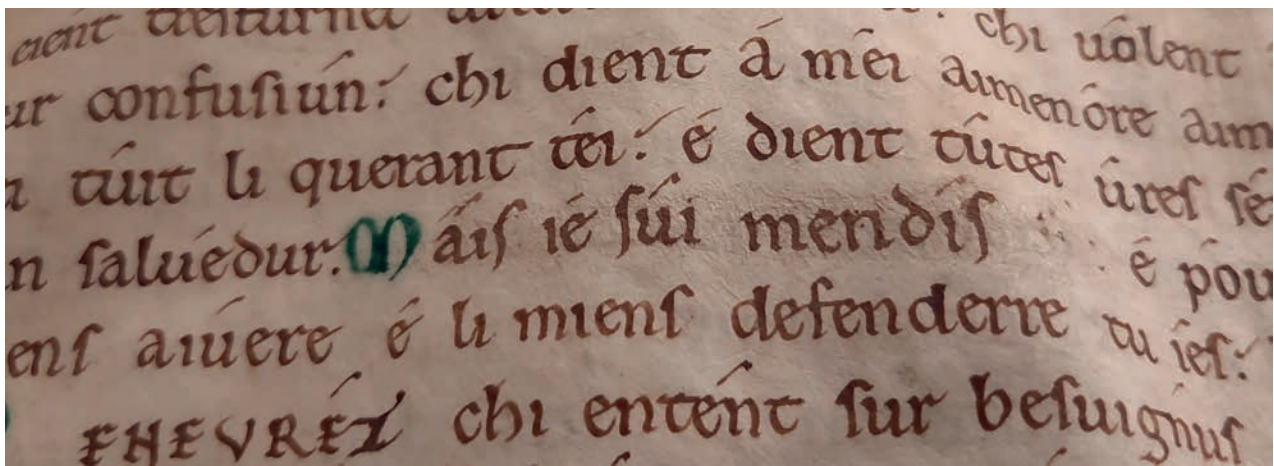 chi uólent
ur confusiún: chi dient á méi aimenóre aim
túit li querant téi: é dient tútes úres sé
n saluédur. Máis ié súi mendís é póu
ens aiúere é li miens defenderre tu iés:
EHEVRÉZ chi entént sur besuignus